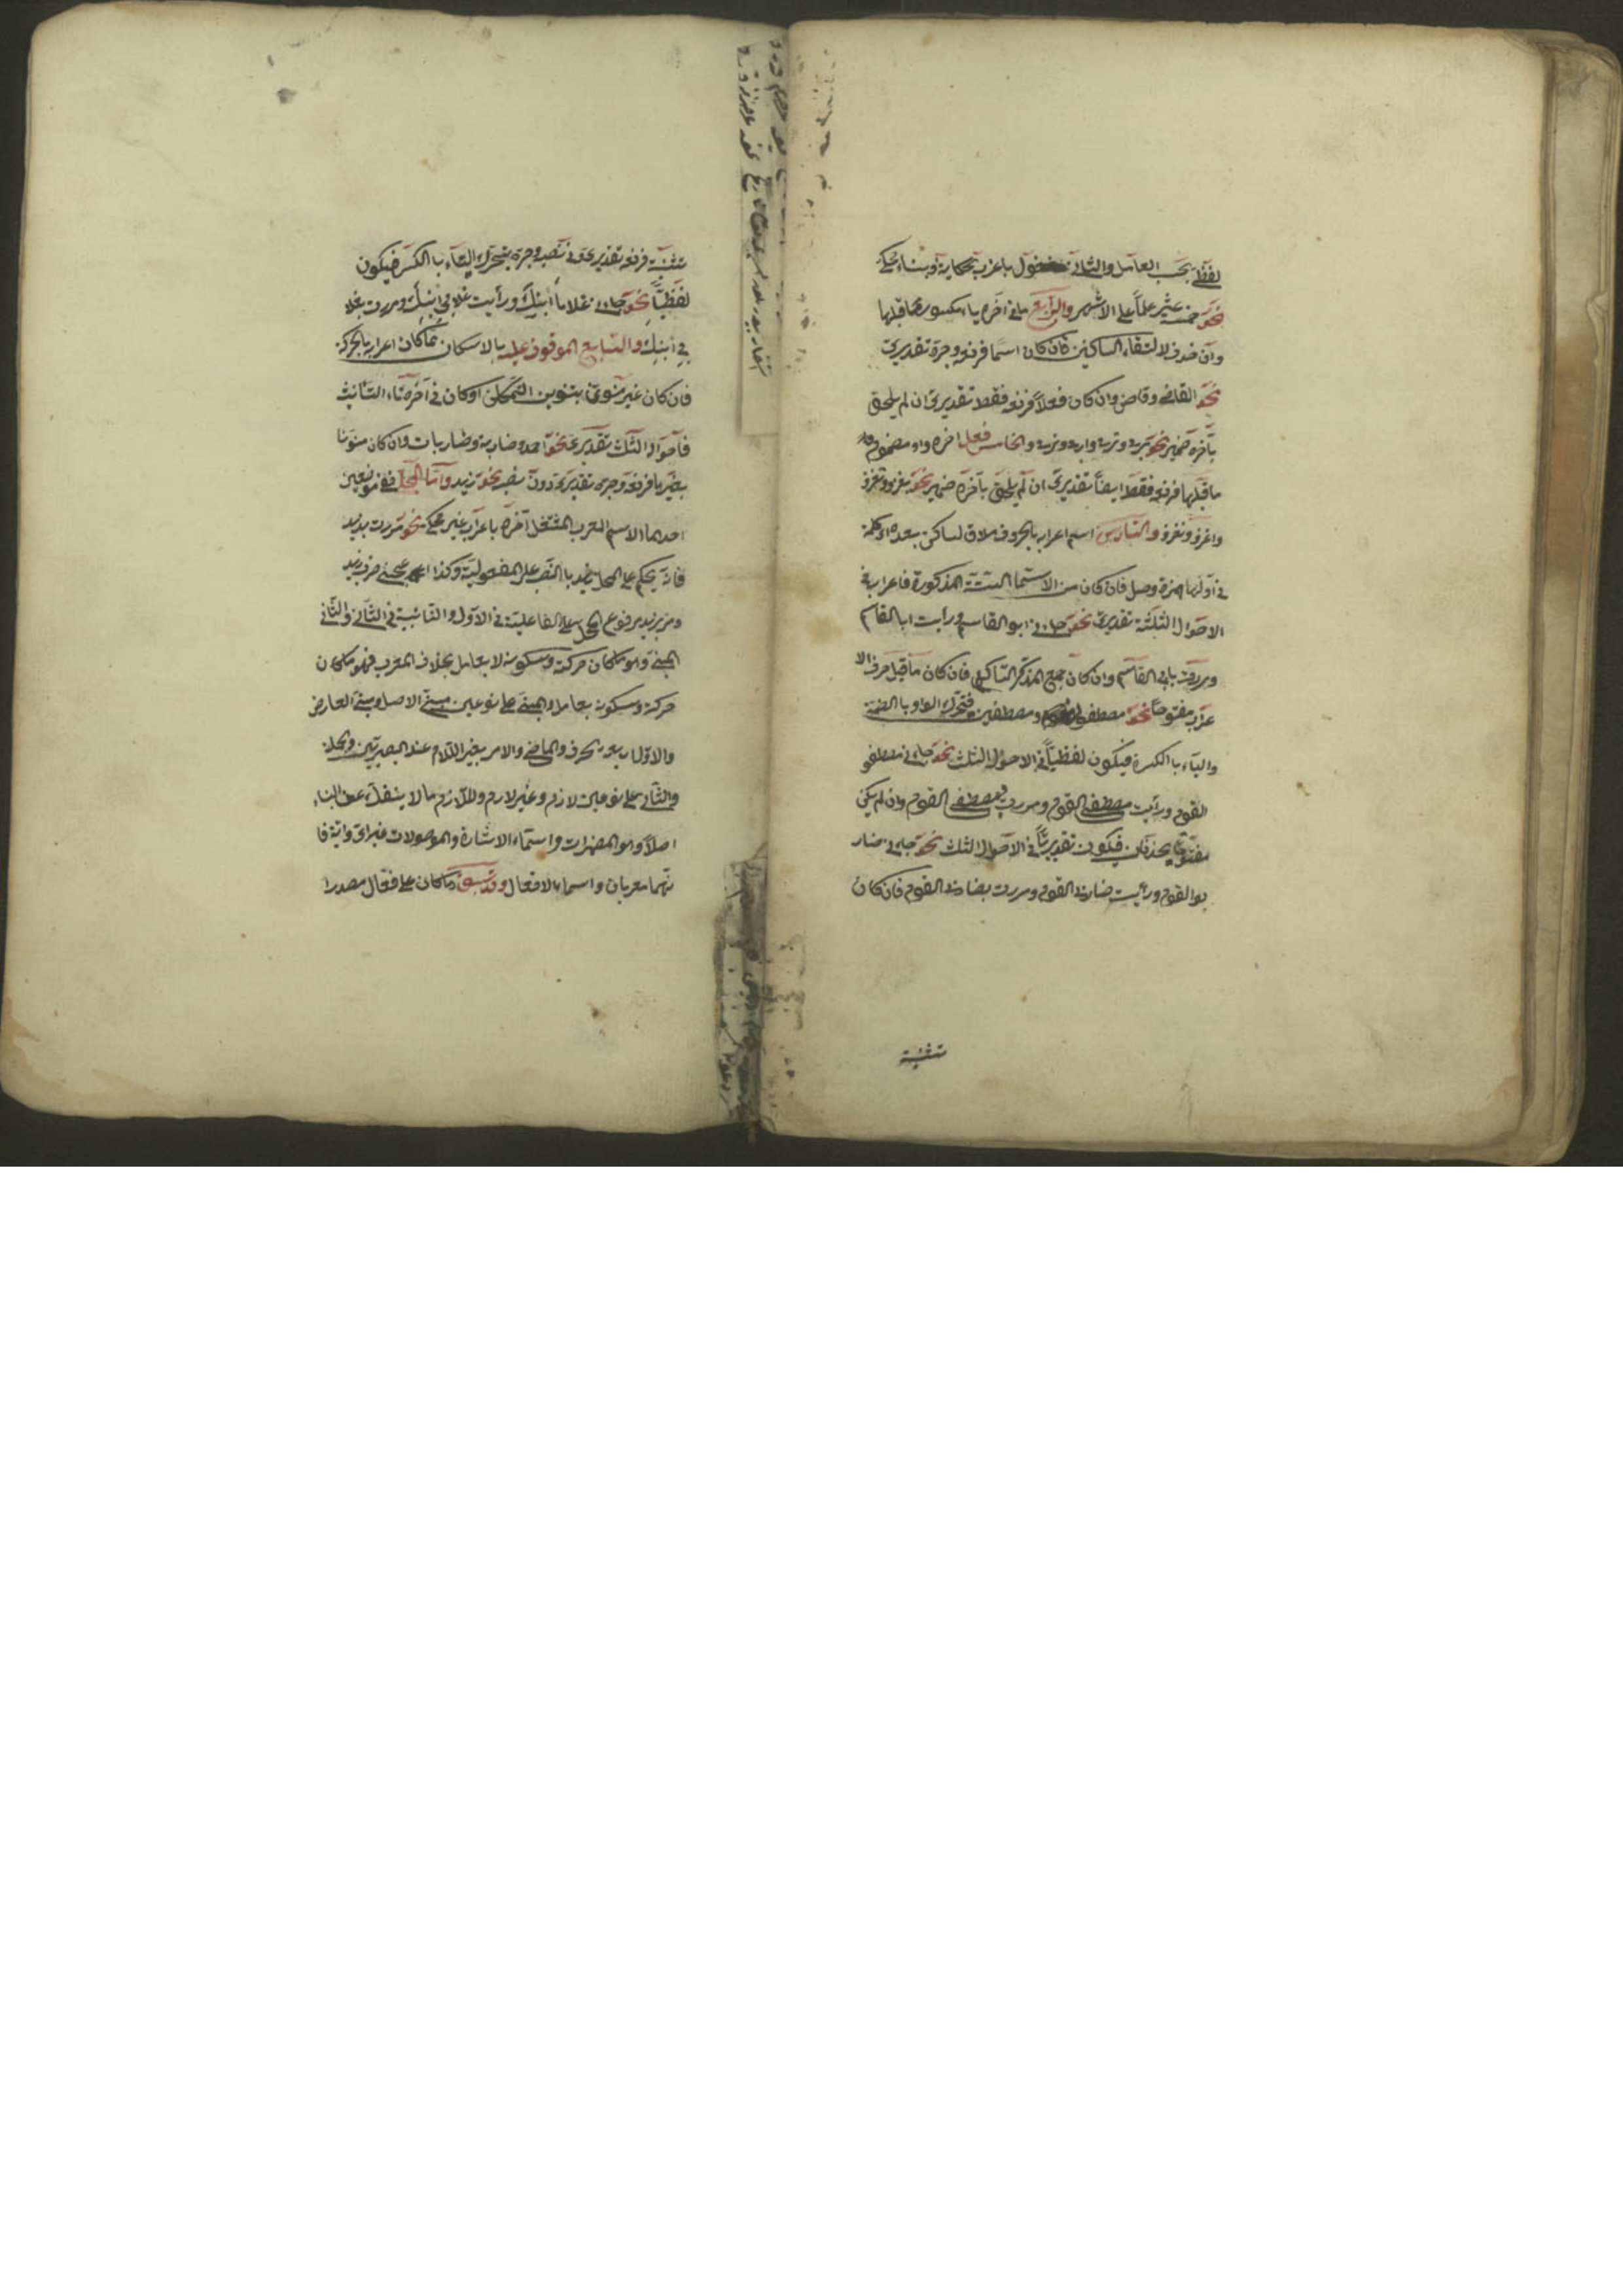 لفظي بحسب العامل والثاني مشغول باعراب محكاية او بناء محكي
نحو خمسة عشر علما على الاشهر والرابع ما في آخره ياء مكسور ما قبلها
وان حذف لالتقاء الساكنين فان كان اسما فرفعه وجره تقديري
نحو القاضي وقاض وان كان فعلا فرفعه فقط تقديري ان لم يلحق
بآخره ضمير نحو يرمي وترمي وارمي ونرمي والخامس فعل اخره واو مضموم
ما قبلها فرفعه فقط ايضا تقديري ان لم يلحق بآخره ضمير نحو يغزو وتغزو
واغزو ونغزو والسادس اسم اعرابه بالحروف ملاق لساكن بعده اي كلمة
في اولها همزة وصل فان كان من الاسماء الستة المذكورة فاعرابه في
الاحوال الثلثة تقديري نحو جاءني ابو القاسم ورأيت ابا القاسم
ومررت بابي القاسم وان كان جمع المذكر السالم فان كان ما قبل حرف الا
عراب مفتوحا نحو مصطفون ومصطفين فتحرك الواو با الضمة
والياء با الكسرة فيكون لفظيا في الاحوال الثلث نحو جاءني مصطفو
القوم ورأيت مصطفي القوم ومررت بمصطفي القوم وان لم يكن
مفتوحا يحذفان فيكون تقديريا في الاحوال الثلث نحو جاءني ضار
بو القوم ورأيت ضاربي القوم ومررت بضاربي القوم فان كان
تثنية
تثنية فرفعه تقديري وفي نصبه وجره يتحرك الياء با الكسر فيكون
لفظيا نحو جاءني غلاما ابنك ورأيت غلامي ابنك ومررت بغلا
مي ابنك والسابع الموقوف عليه بالاسكان مما كان اعرابه بالحركة
فان كان غير منون بتنوين التمكن او كان في آخره تاء التانيث
فاحواله الثلث تقديري نحو احمد وضاربة وضاربات وان كان منونا
بغيرها فرفعه وجره تقديري دون نصبه نحو زيد واما المحلي ففي موضعين
احدهما الاسم المعرب المشتغل آخره باعراب غير محكي نحو مررت بزيد
فانه يحكم على محل زيد با النصب على المفعولية وكذا اعجبني ضرب زيد
ومر بزيد مرفوع المحل على الفاعلية في الاول والنائبية في الثاني والثاني
المبني وهو ما كان حركته وسكونه لا بعامل بخلاف المعرب فهو ما كان
حركته وسكونه بعامل والمبني على نوعين مبني الاصل ومبني العارض
والاول اربعة الحرف والماضي والامر بغير اللام عند البصريين والجملة
والثاني على نوعين لازم وغير لازم واللازم ما لا ينفك عن البناء
اصلا وهو المضمرات واسماء الاشارة والموصولات غير اي واية فا
نهما معربان واسماء الافعال وقد سبق وما كان على فعال مصدرا